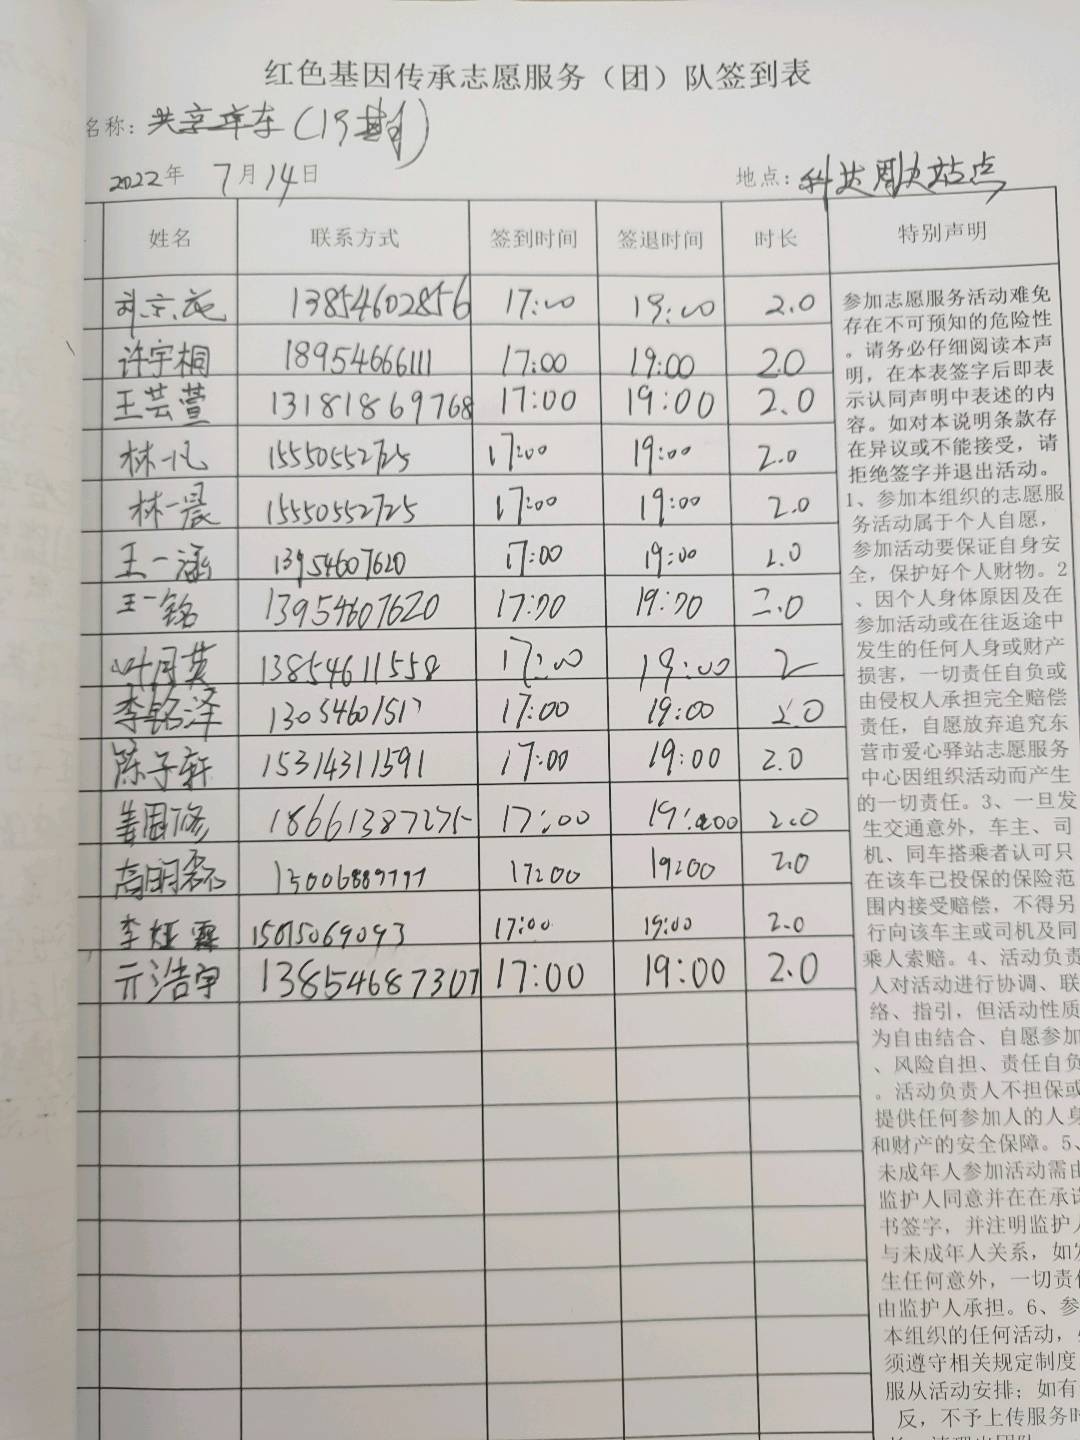 红色基因传承志愿服务（团）队签到表
名称：共享单车（19
2022年 7月14日 地点：科达周边站点
姓名 联系方式 签到时间 签退时间 时长 特别声明
13854602856 17:00 19:00 2.0
许宇桐 18954666111 17:00 19:00 2.0
王芸萱 13181869768 17:00 19:00 2.0
林一凡 15550552725 17:00 19:00 2.0
林一晨 15550552725 17:00 19:00 2.0
王一涵 13954607620 17:00 19:00 2.0
王一铭 13954607620 17:00 19:00 2.0
叶月英 13854611558 17:00 19:00 2
李铭泽 17:00 19:00 2.0
陈子轩 15314311591 17:00 19:00 2.0
姜国修 18661387275 17:00 19:00 2.0
17:00 19:00 2.0
15015069093 17:00 19:00 2.0
亓浩宇 13854687307 17:00 19:00 2.0
参加志愿服务活动难免
存在不可预知的危险性
。请务必仔细阅读本声
明，在本表签字后即表
示认同声明中表述的内
容。如对本说明条款存
在异议或不能接受，请
拒绝签字并退出活动。
1、参加本组织的志愿服
务活动属于个人自愿，
参加活动要保证自身安
全，保护好个人财物。2
、因个人身体原因及在
参加活动或在往返途中
发生的任何人身或财产
损害，一切责任自负或
由侵权人承担完全赔偿
责任，自愿放弃追究东
营市爱心驿站志愿服务
中心因组织活动而产生
的一切责任。3、一旦发
生交通意外，车主、司
机、同车搭乘者认可只
在该车已投保的保险范
围内接受赔偿，不得另
行向该车主或司机及同
乘人索赔。4、活动负责
人对活动进行协调、联
络、指引，但活动性质
为自由结合、自愿参加
、风险自担、责任自负
。活动负责人不担保或
提供任何参加人的人身
和财产的安全保障。5、
未成年人参加活动需由
监护人同意并在在承诺
书签字，并注明监护人
与未成年人关系，如发
生任何意外，一切责任
由监护人承担。6、参
本组织的任何活动，
须遵守相关规定制度
服从活动安排；如有
反，不予上传服务时